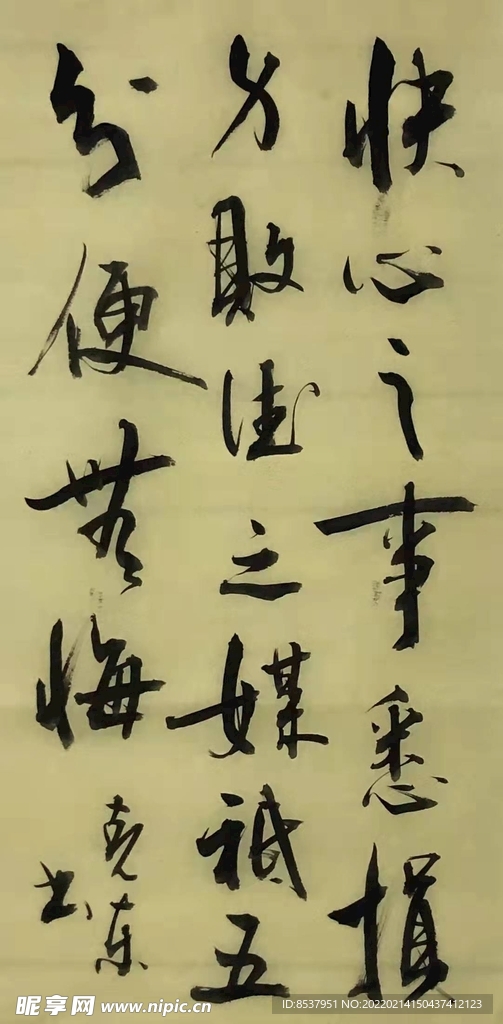 快心之事悉損
身敗德之媒祇五
分便無悔
克東
书
昵享网 www.nipic.cn
ID:8537951 NO:20220214150437412123